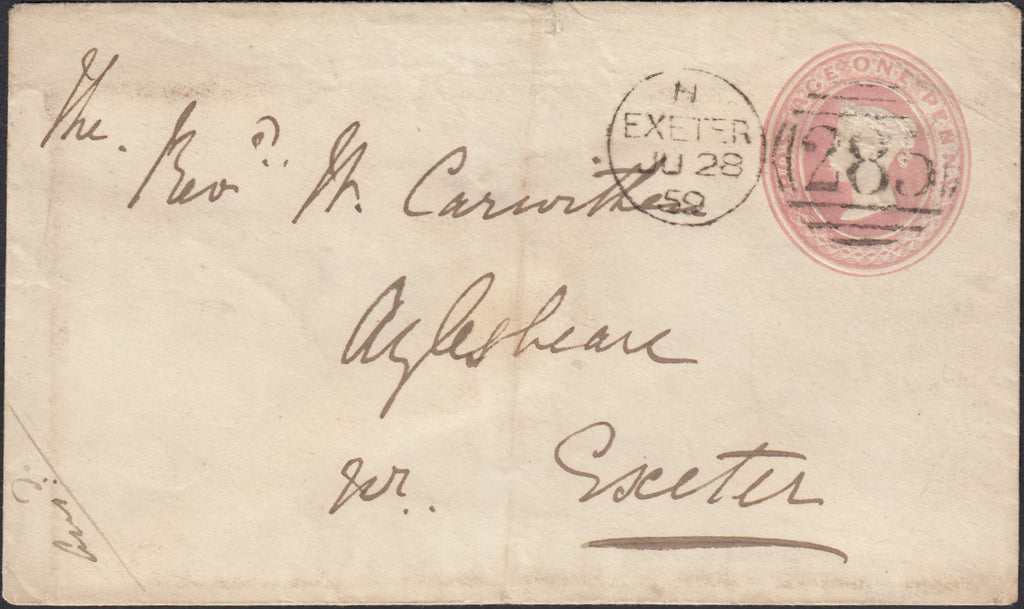 The.
Revd. W. Carwithen
Aylesbeare
nr. Exeter
H
EXETER
JU 28
59
POSTAGE ONE PENNY
285